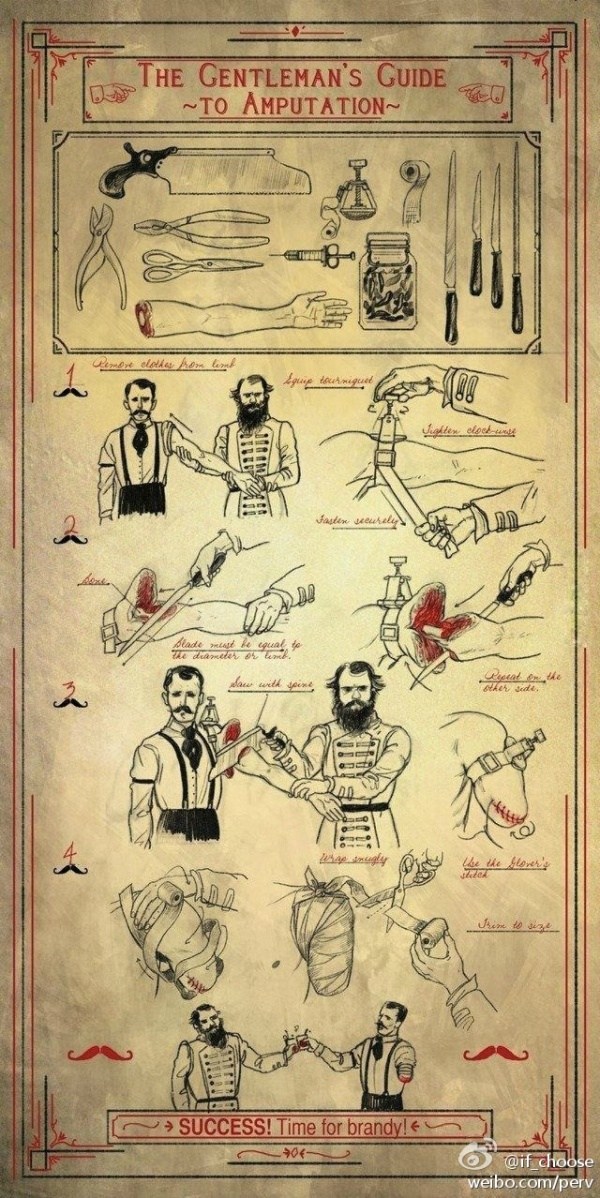 THE GENTLEMAN'S GUIDE
~TO AMPUTATION~
1
Remove clothes from limb
Equip tourniquet
Tighten clock-wise
Fasten securely
2
Bone
Blade must be equal to
the diameter or limb.
Repeat on the
other side.
3
Saw with spine
Use the Glover's
stitch
4
Wrap snugly
Trim to size
SUCCESS! Time for brandy!
@if_choose
weibo.com/perv